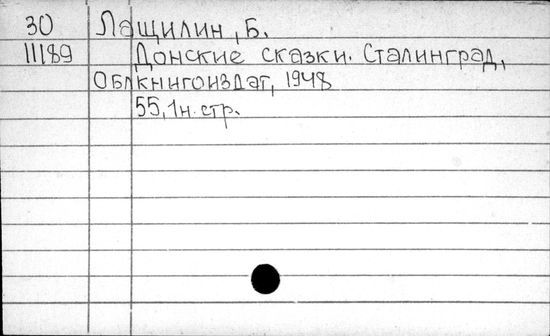 30 Лащилин, Б.
11189 Донские сказки. Сталинград,
Облкнигоиздат, 1948
55, 1н. стр.